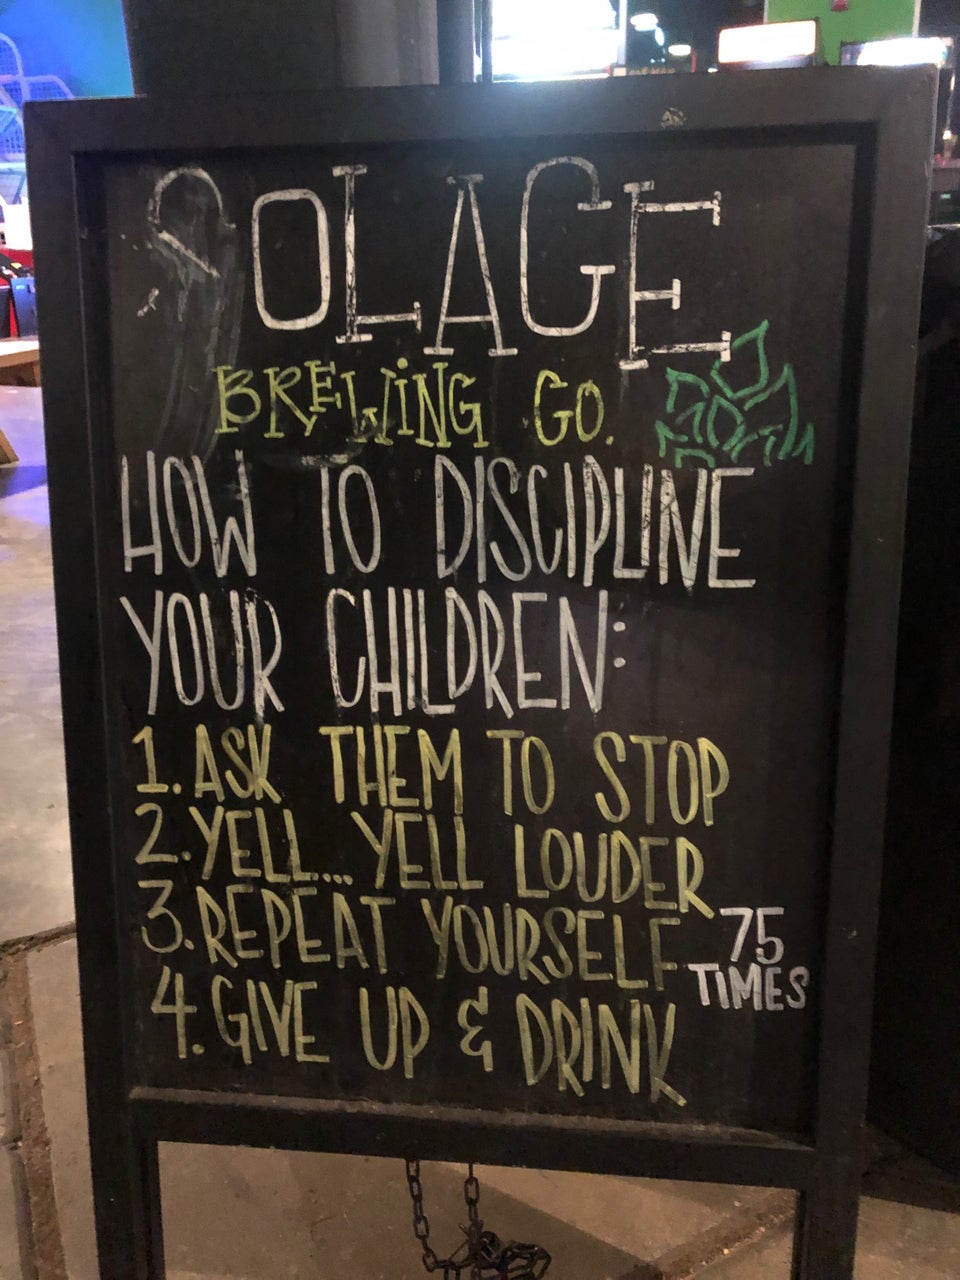 SOLACE
BREWING CO.
HOW TO DISCIPLINE
YOUR CHILDREN:
1. ASK THEM TO STOP
2. YELL... YELL LOUDER
3. REPEAT YOURSELF 75 TIMES
4. GIVE UP & DRINK